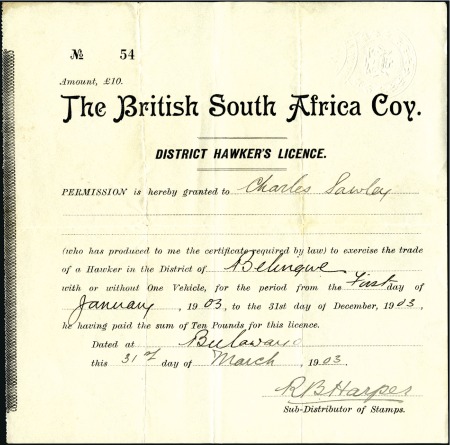 № 54
Amount, £10.
The British South Africa Coy.
DISTRICT HAWKER'S LICENCE.
PERMISSION is hereby granted to Charles Sawley
(who has produced to me the certificate required by law) to exercise the trade
of a Hawker in the District of Belingwe
with or without One Vehicle, for the period from the First day of
January, 1903, to the 31st day of December, 1903,
he having paid the sum of Ten Pounds for this licence.
Dated at Bulawayo
this 31st day of March, 1903.
R B Harper
Sub-Distributor of Stamps.